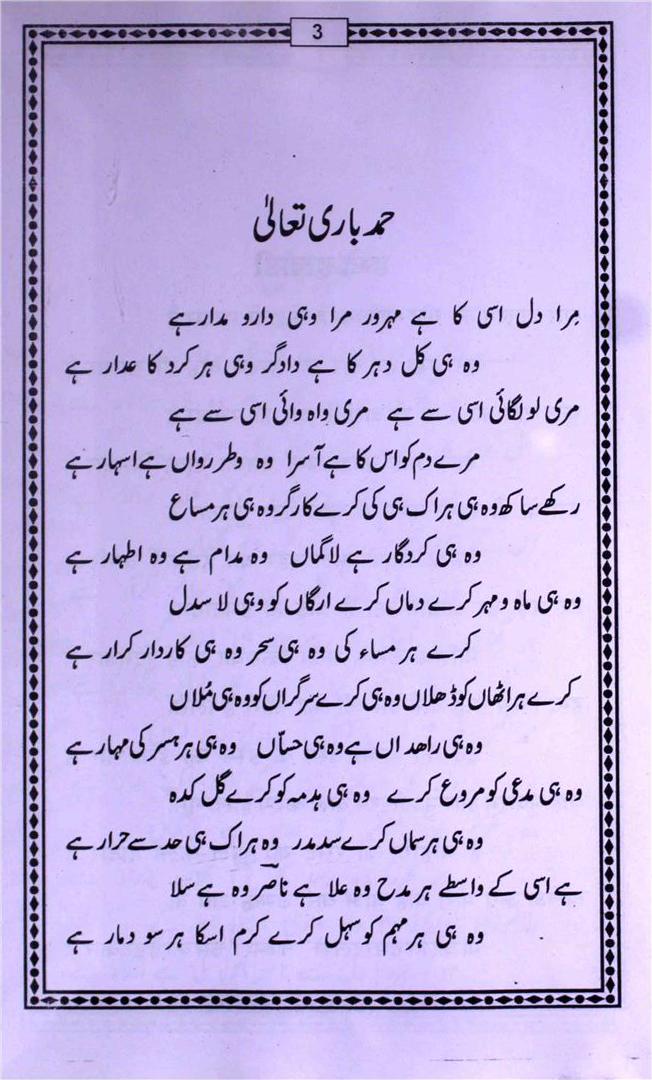 3
حمد باری تعالیٰ
مرا دل اسی کا ہے مہرور مرا وہی دارو مدار ہے
وہ ہی کل دہر کا ہے دادگر وہی ہر کرد کا عدار ہے
مری لو لگائی اسی سے ہے مری واہ وائی اسی سے ہے
مرے دم کو اس کا ہے آسرا وہ وطر رواں ہے اسہار ہے
رکھے ساکھ وہ ہی ہر اک ہی کی کرے کارگر وہ ہی ہر مساع
وہ ہی کردگار ہے لاگماں وہ مدام ہے وہ اطہار ہے
وہ ہی ماہ و مہر کرے دماں کرے ارگاں کو وہی لا سدل
کرے ہر مساء کی وہ ہی سحر وہ ہی کاردار کرار ہے
کرے ہر اٹھاں کو ڈھلاں وہ ہی کرے سرگراں کو وہ ہی مُلاں
وہ ہی راھداں ہے وہ ہی حسّاں وہ ہی ہر ہسر کی مہار ہے
وہ ہی مدعی کو مروع کرے وہ ہی ہدمہ کو کرے گل کدہ
وہ ہی ہر سماں کرے سدمدر وہ ہر اک ہی حد سے حرار ہے
ہے اسی کے واسطے ہر مدح وہ علا ہے ناصر وہ ہے سلا
وہ ہی ہر مہم کو سہل کرے کرم اسکا ہر سو دمار ہے